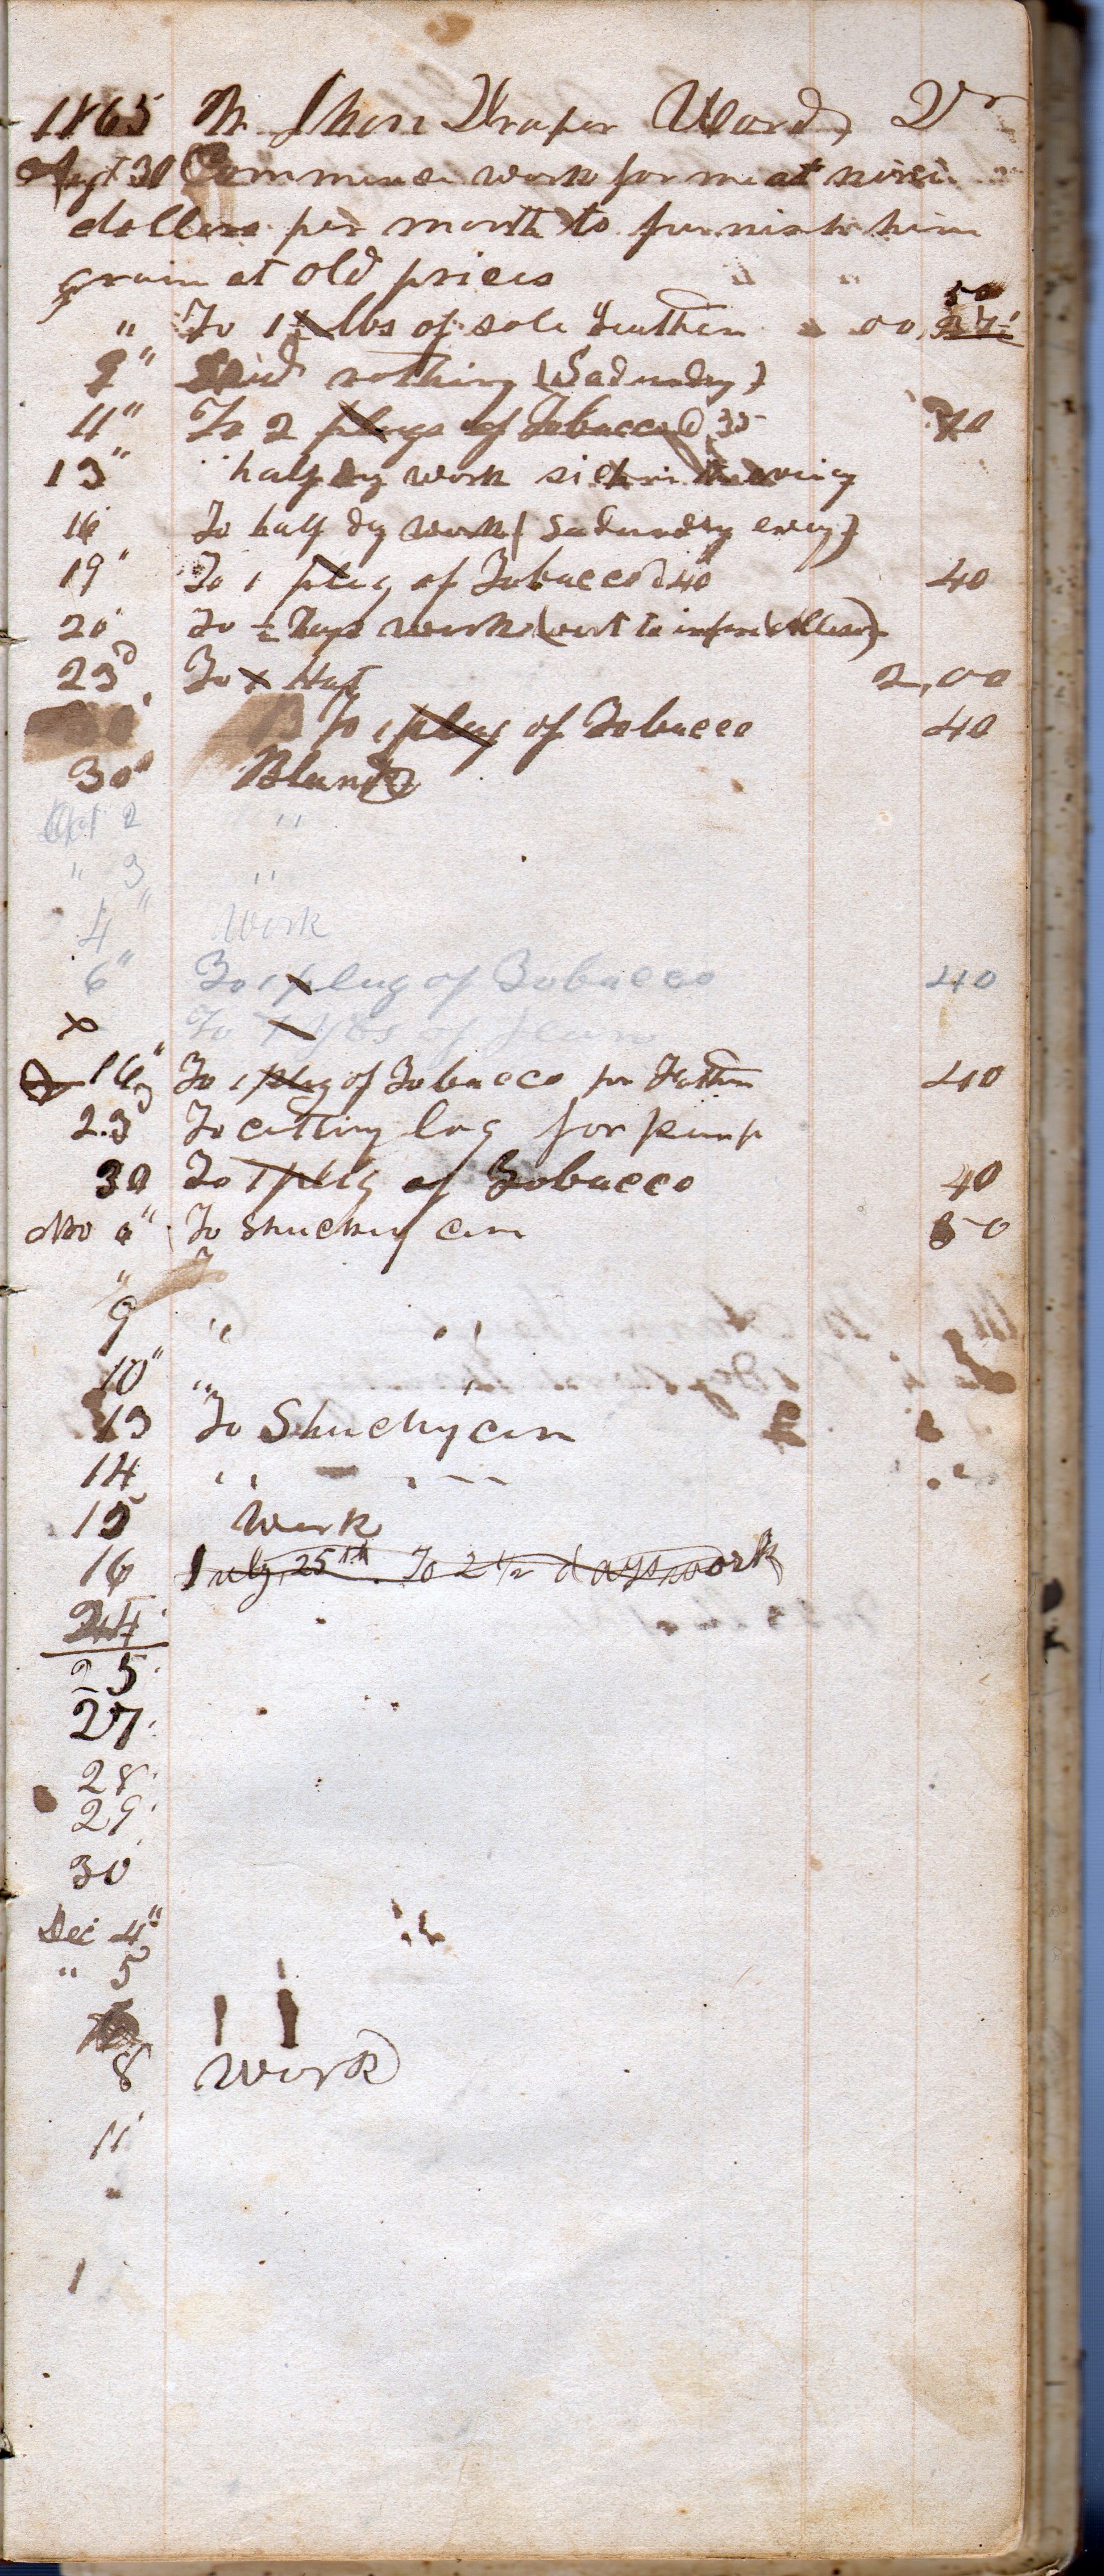 1865 Draper Ward, Dr
Commence work for me at nine
dollars per month to furnish him
grain at old prices
" To 1 lbs of sole Leather 00, 50
9" nothing (Saturday)
11" To 2 plugs of Tobacco @ 35 70
13" half dy work sick in the evening
16 To half dy work (Saturday eving)
19" To 1 plug of Tobacco @ 40 40
20 To ½ Days work (went to
23d To 1 Hat 2,00
To 1 plug of Tobacco 40
30" Blank
Oct 2 "
" 3 "
4" Work
6" To 1 plug of Tobacco 40
To yds of
16" To 1 plug of Tobacco for Father 40
23 To cutting log for pump
30 To 1 plug of Tobacco 40
To Shucking corn 50
"
9 "
10" "
13 To Shuckng corn
14 " "
15 Work
16 July 25th To 2 1/2 days work
24
25
27
28
29
30
Dec 4"
" 5
8 Work
11
1